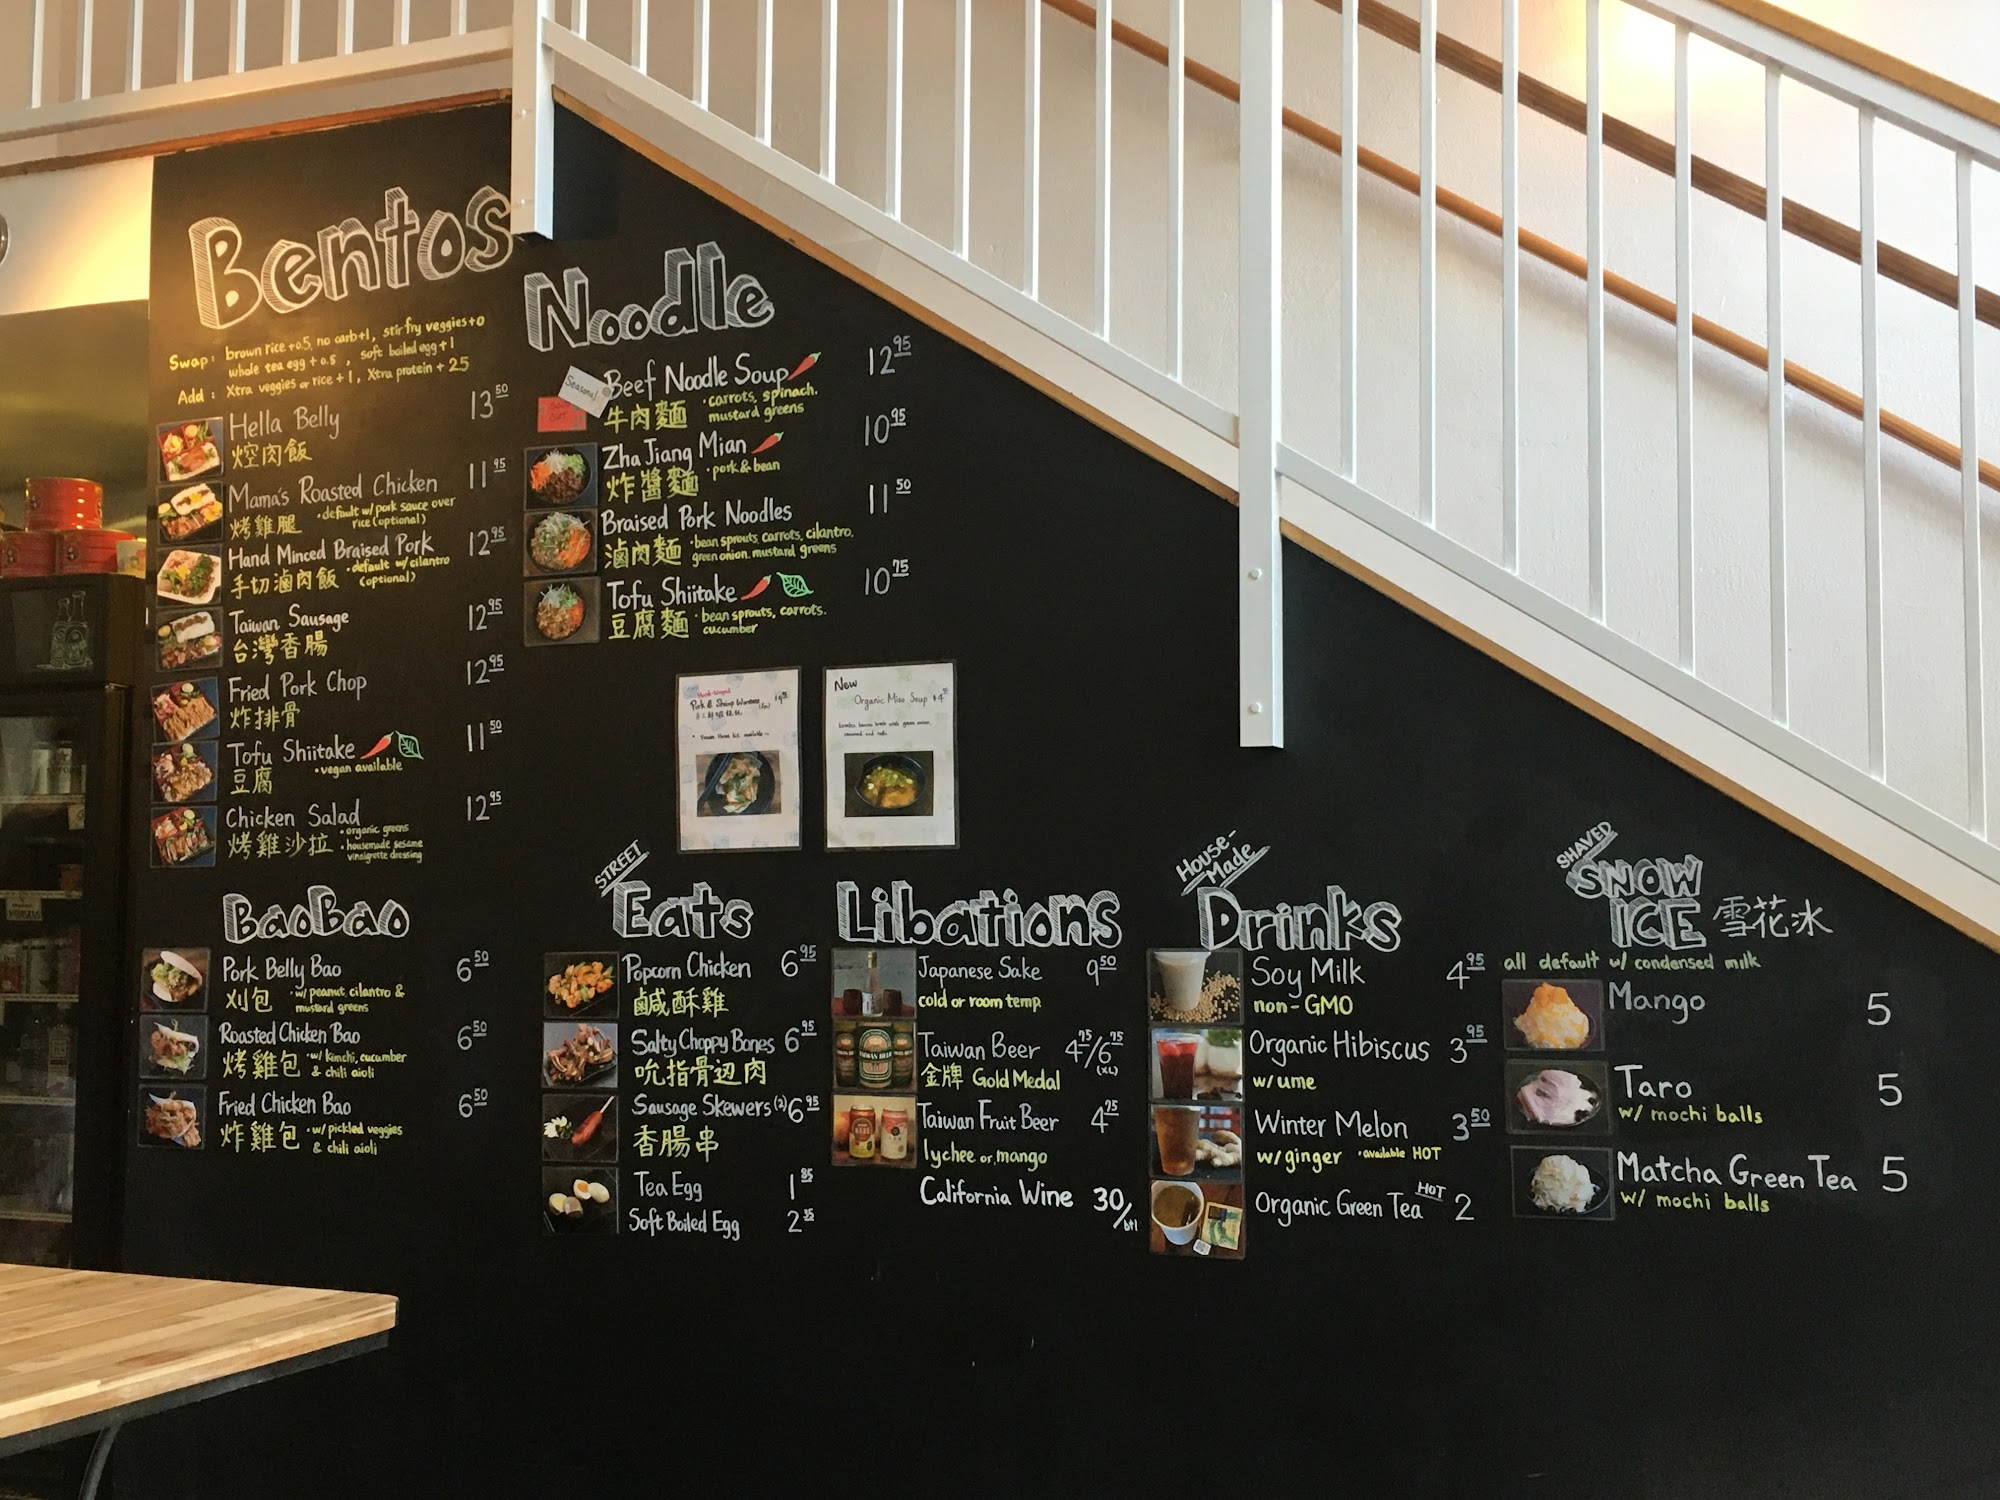 Bentos
Swap: brown rice +0.5, no carb+1, stir fry veggies+0
whole tea egg +0.5, soft boiled egg +1
Add: Xtra veggies or rice +1, Xtra protein +25
Hella Belly 13 50
焢肉飯
Mama's Roasted Chicken 11 95
烤雞腿 •default w/ pork sauce over
rice (optional)
Hand Minced Braised Pork 12 95
手切滷肉飯 •default w/ cilantro
(optional)
Taiwan Sausage 12 95
台灣香腸
Fried Pork Chop 12 95
炸排骨
Tofu Shiitake 11 50
豆腐 •vegan available
Chicken Salad 12 95
烤雞沙拉 •organic greens
•housemade sesame
vinaigrette dressing
Noodle
Seasonal
Beef Noodle Soup 12 95
SOLD OUT
牛肉麵 •carrots, spinach.
mustard greens
Zha Jiang Mian 10 95
炸醬麵 •pork & bean
Braised Pork Noodles 11 50
滷肉麵 •bean sprouts, carrots, cilantro.
green onion. mustard greens
Tofu Shiitake 10 75
豆腐麵 •bean sprouts, carrots.
cucumber
Pork & Shrimp Wontons
New
Organic Miso Soup $4
BaoBao
Pork Belly Bao 6 50
刈包 •w/ peanut, cilantro &
mustard greens
Roasted Chicken Bao 6 50
烤雞包 •w/ kimchi, cucumber
& chili aioli
Fried Chicken Bao 6 50
炸雞包 •w/ pickled veggies
& chili aioli
STREET
Eats
Popcorn Chicken 6 95
鹹酥雞
Salty Choppy Bones 6 95
吮指骨边肉
Sausage Skewers (2) 6 95
香腸串
Tea Egg 1 85
Soft Boiled Egg 2 35
Libations
Japanese Sake 9 50
cold or room temp
Taiwan Beer 4 75/6 75
(XL)
金牌 Gold Medal
Taiwan Fruit Beer 4 75
lychee or mango
California Wine 30/btl
House-
Made
Drinks
Soy Milk 4 95
non-GMO
Organic Hibiscus 3 95
w/ ume
Winter Melon 3 50
w/ginger •available HOT
Organic Green Tea HOT 2
SHAVED
SNOW
ICE 雪花冰
all default w/ condensed milk
Mango 5
Taro 5
w/ mochi balls
Matcha Green Tea 5
w/ mochi balls